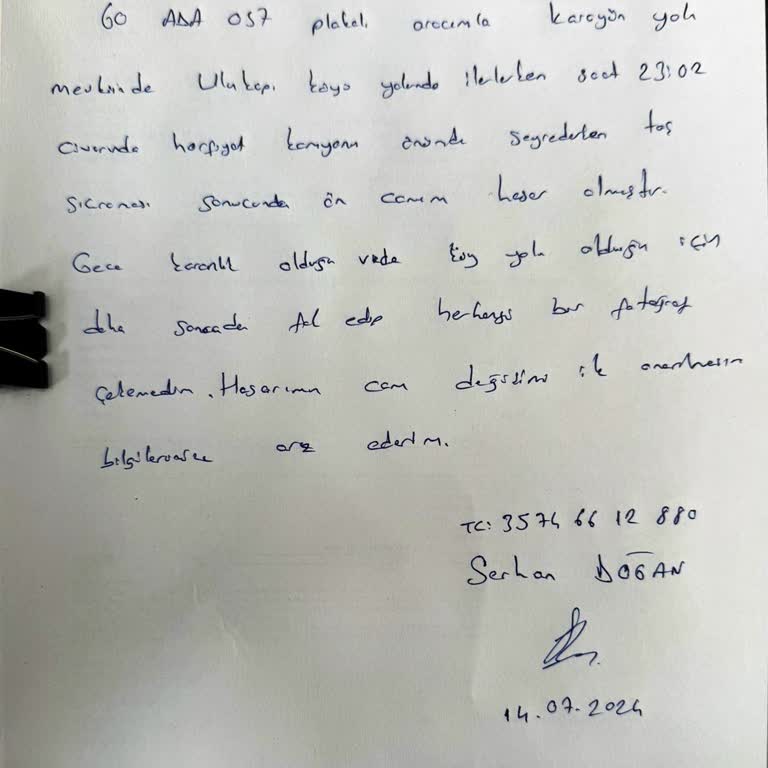 60 ADA 057 plakalı aracımla karayün yolu
mevkiinde Ulukapı köyü yolunda ilerlerken saat 23:02
civarında harfiyat kamyonu önünde seyrederken taş
sıcraması sonucunda ön camım hasar olmuştur.
Gece karanlık olduğu vede köy yolu olduğu için
daha sonrada fark edip herhangi bir fotoğraf
çekemedim. Hasarımın cam değişimi ile onarılmasını
bilgilerinize arz ederim.
TC: 3574 66 12 880
Serhan DOĞAN
14.07.2024